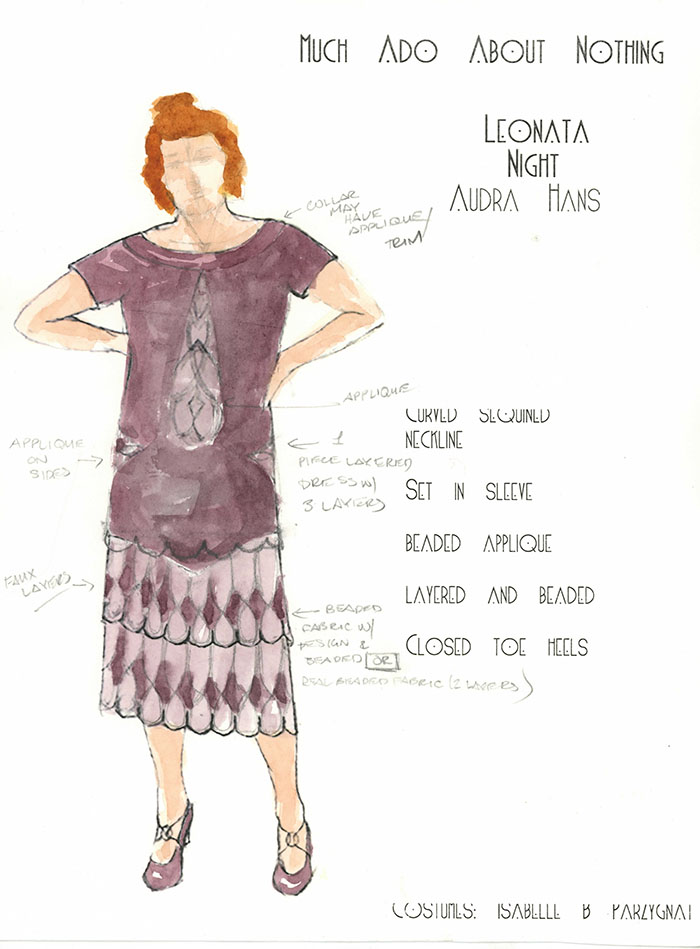 Much Ado About Nothing
Leonata
Night
Audra Hans
COLLAR
MAY
HAVE
APPLIQUE/
TRIM
APPLIQUE
Curved sequined
neckline
APPLIQUE
ON
SIDES
1
PIECE LAYERED
DRESS W/
3 LAYERS
Set in sleeve
beaded applique
FAUX
LAYERS
layered and beaded
BEADED
FABRIC W/
DESIGN &
BEADED OR
REAL BEADED FABRIC (2 LAYERS)
Closed toe heels
Costumes: Isabelle B Parzygnat